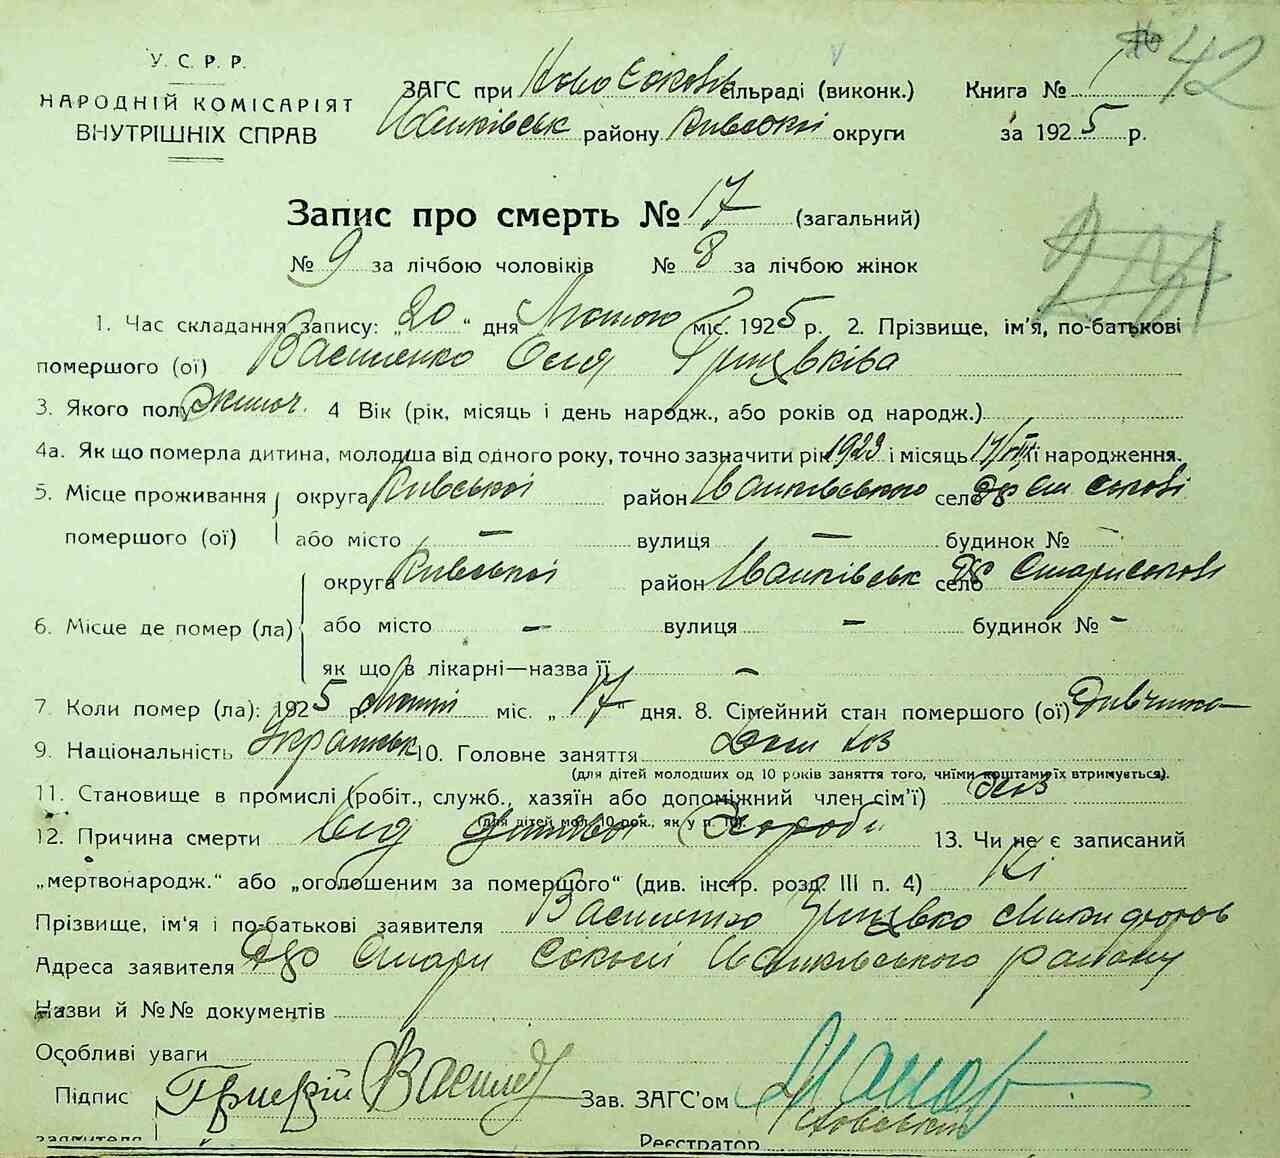 У. С. Р. Р.
НАРОДНІЙ КОМІСАРІЯТ
ВНУТРІШНІХ СПРАВ
ЗАГС при Ново Соколів сільраді (виконк.)
Іванківськ району Київської округи
Книга № 1
за 1925 р.
42
Запис про смерть № 17 (загальний)
№ 9 за лічбою чоловіків № 8 за лічбою жінок
1. Час складання запису: „20“ дня Лютого міс. 1925 р. 2. Прізвище, ім'я, по-батькові
помершого (ої) Василенко Оля Грицьківа
3. Якого полу жіноч. 4 Вік (рік, місяць і день народж., або років од народж.)
4а. Як що померла дитина, молодша від одного року, точно зазначити рік 1923 і місяць 17/VIII її народження.
5. Місце проживання округа Київської район Іванківського село
помершого (ої) або місто — вулиця — будинок № —
округа Київської район Іванківськ село Старисокол
6. Місце де помер (ла) або місто — вулиця — будинок № —
як що в лікарні—назва її —
7. Коли помер (ла): 1925 р. Лютий міс. „17“ дня. 8. Сімейний стан помершого (ої) Дивчинка
9. Національність Українськ 10. Головне заняття Дом хоз
(для дітей молодших од 10 років заняття того, чиїми коштами їх втримується).
11. Становище в промислі (робіт., служб., хазяїн або допоміжний член сім'ї) Хоз
(для дітей мол. 10 рок., як у п. 10).
12. Причина смерти Від Хороби 13. Чи не є записаний
„мертвонародж.“ або „оголошеним за помершого“ (див. інстр. розд. III п. 4) Ні
Прізвище, ім'я і по-батькові заявителя Василенко Грицько Никифоров
Адреса заявителя Стари Соколи Іванківського району
Назви й №№ документів
Особливі уваги
Підпис Григорій Василен Зав. ЗАГС'ом
заявителя Реєстратор